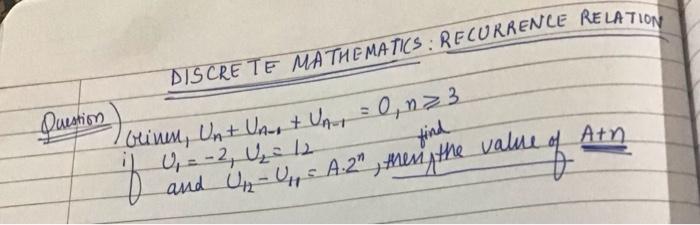 DISCRETE MATHEMATICS : RECURRENCE RELATION
Question) Given, Un + Un-1 + Un-1 = 0, n ≥ 3
if U1 = -2, U2 = 12
and U12 - U11 = A.2^n, then find the value of A+n